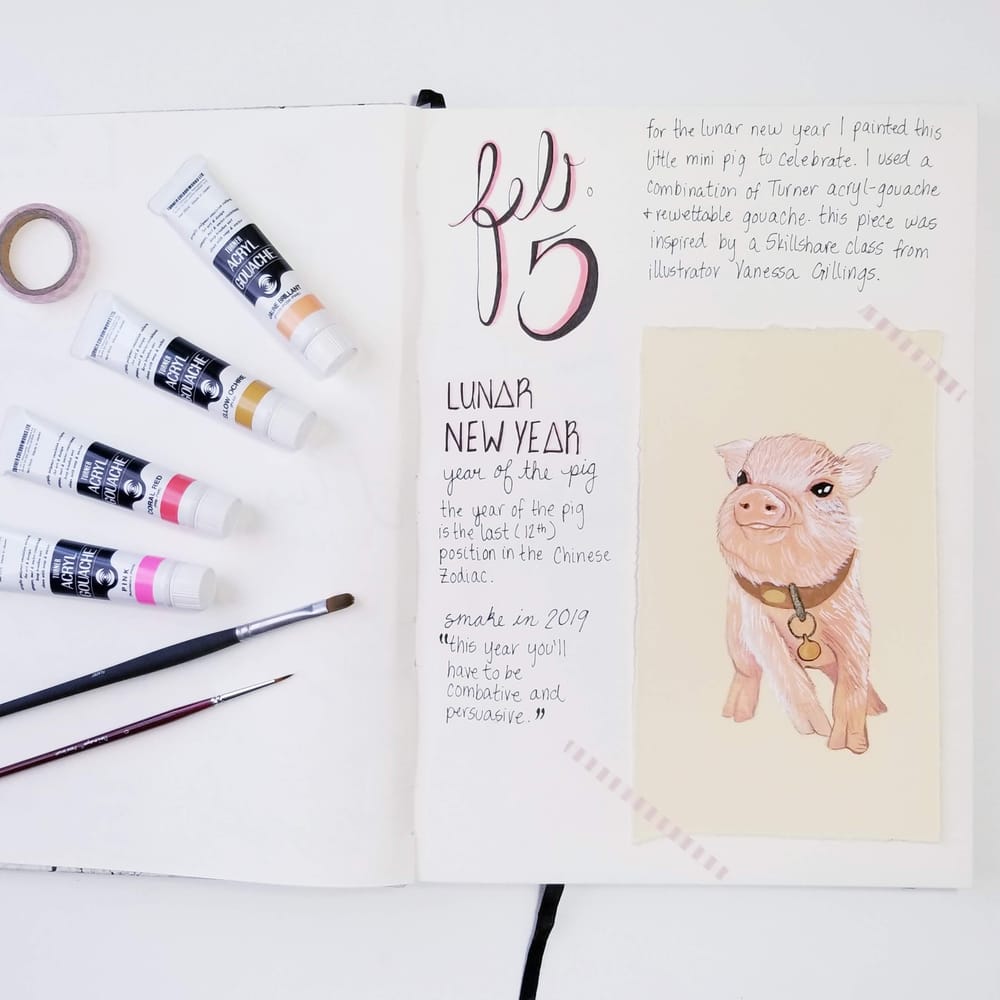 feb.
5
for the lunar new year I painted this
little mini pig to celebrate. I used a
combination of Turner acryl-gouache
+ rewettable gouache. this piece was
inspired by a Skillshare class from
illustrator Vanessa Gillings.
LUNAR
NEW YEAR
year of the pig
the year of the pig
is the last (12th)
position in the Chinese
Zodiac.
snake in 2019
"this year you'll
have to be
combative and
persuasive."
TURNER
ACRYL
GOUACHE
JAUNE BRILLANT
TURNER
ACRYL
GOUACHE
YELLOW OCHRE
TURNER
ACRYL
GOUACHE
CORAL RED
TURNER
ACRYL
GOUACHE
PINK